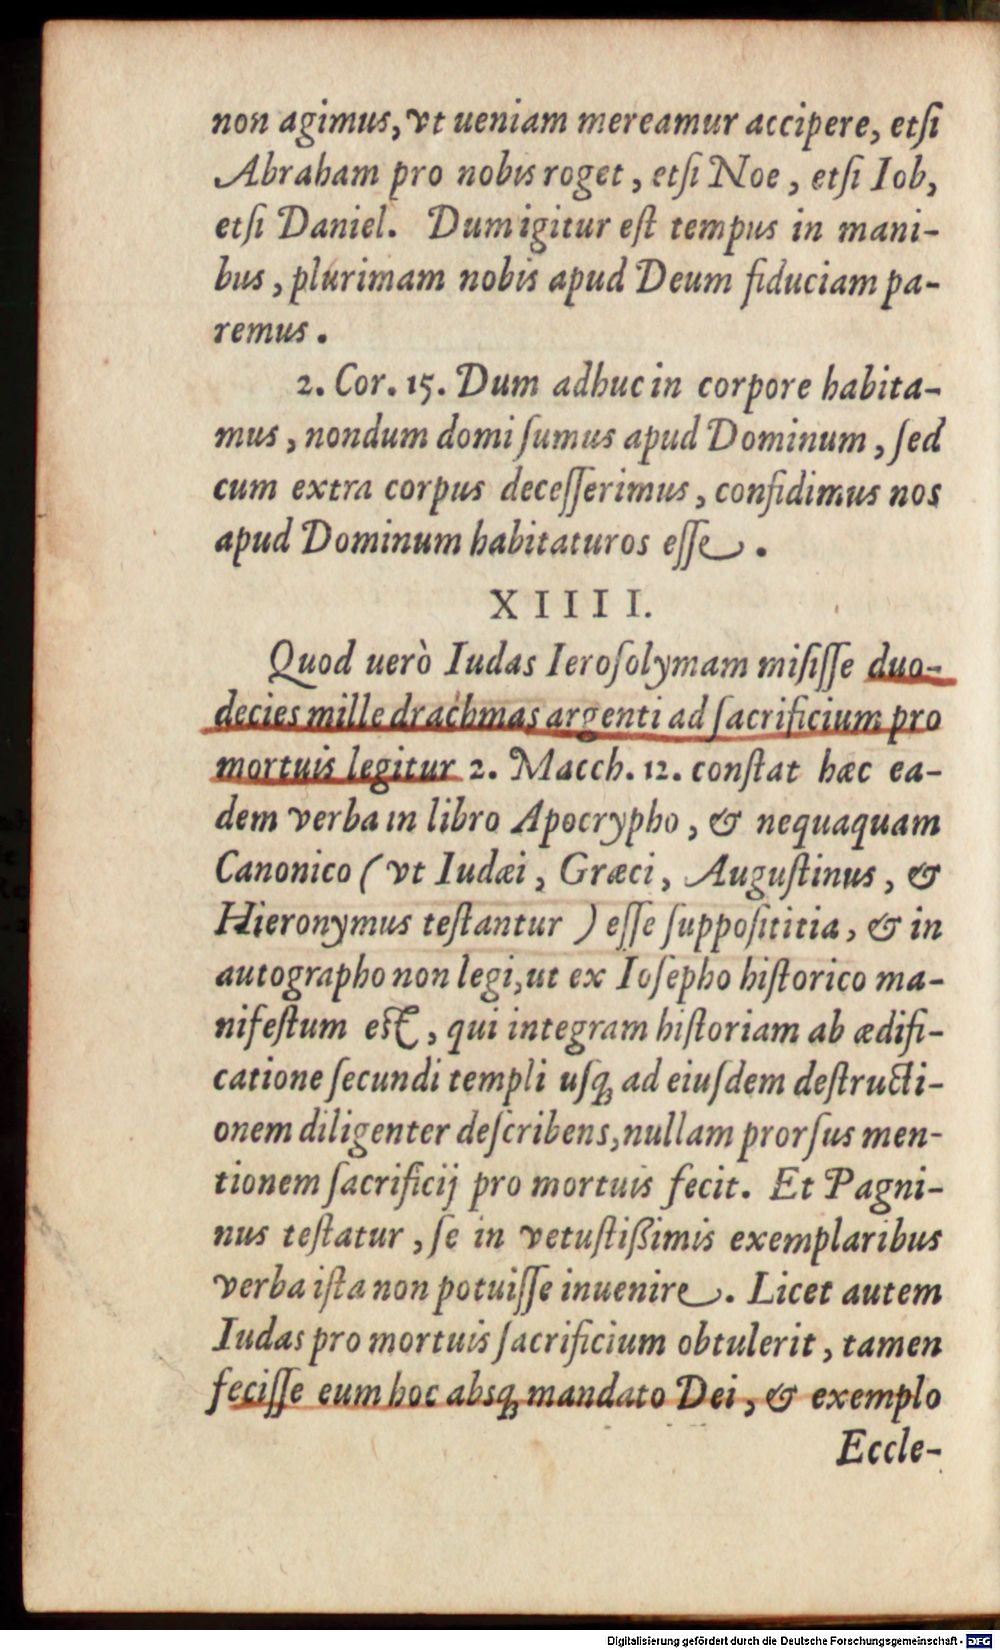 non agimus, vt ueniam mereamur accipere, etſi
Abraham pro nobis roget, etſi Noe, etſi Iob,
etſi Daniel. Dum igitur eſt tempus in mani-
bus, plurimam nobis apud Deum fiduciam pa-
remus.
2. Cor. 15. Dum adhuc in corpore habita-
mus, nondum domi ſumus apud Dominum, ſed
cum extra corpus deceſſerimus, confidimus nos
apud Dominum habitaturos eſſe.
XIIII.
Quod uerò Iudas Ieroſolymam miſiſſe duo-
decies mille drachmas argenti ad ſacrificium pro
mortuis legitur 2. Macch. 12. conſtat hæc ea-
dem verba in libro Apocrypho, & nequaquam
Canonico (vt Iudæi, Græci, Auguſtinus, &
Hieronymus teſtantur) eſſe ſuppoſititia, & in
autographo non legi, ut ex Ioſepho hiſtorico ma-
nifeſtum eſt, qui integram hiſtoriam ab ædifi-
catione ſecundi templi uſq; ad eiuſdem deſtructi-
onem diligenter deſcribens, nullam prorſus men-
tionem ſacrificij pro mortuis fecit. Et Pagni-
nus teſtatur, ſe in vetuſtiſsimis exemplaribus
verba iſta non potuiſſe inuenire. Licet autem
Iudas pro mortuis ſacrificium obtulerit, tamen
feciſſe eum hoc absq; mandato Dei, & exemplo
Eccle-
Digitalisierung gefördert durch die Deutsche Forschungsgemeinschaft - DFG